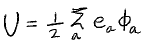 U = ½ Σₐ eₐ ϕₐ